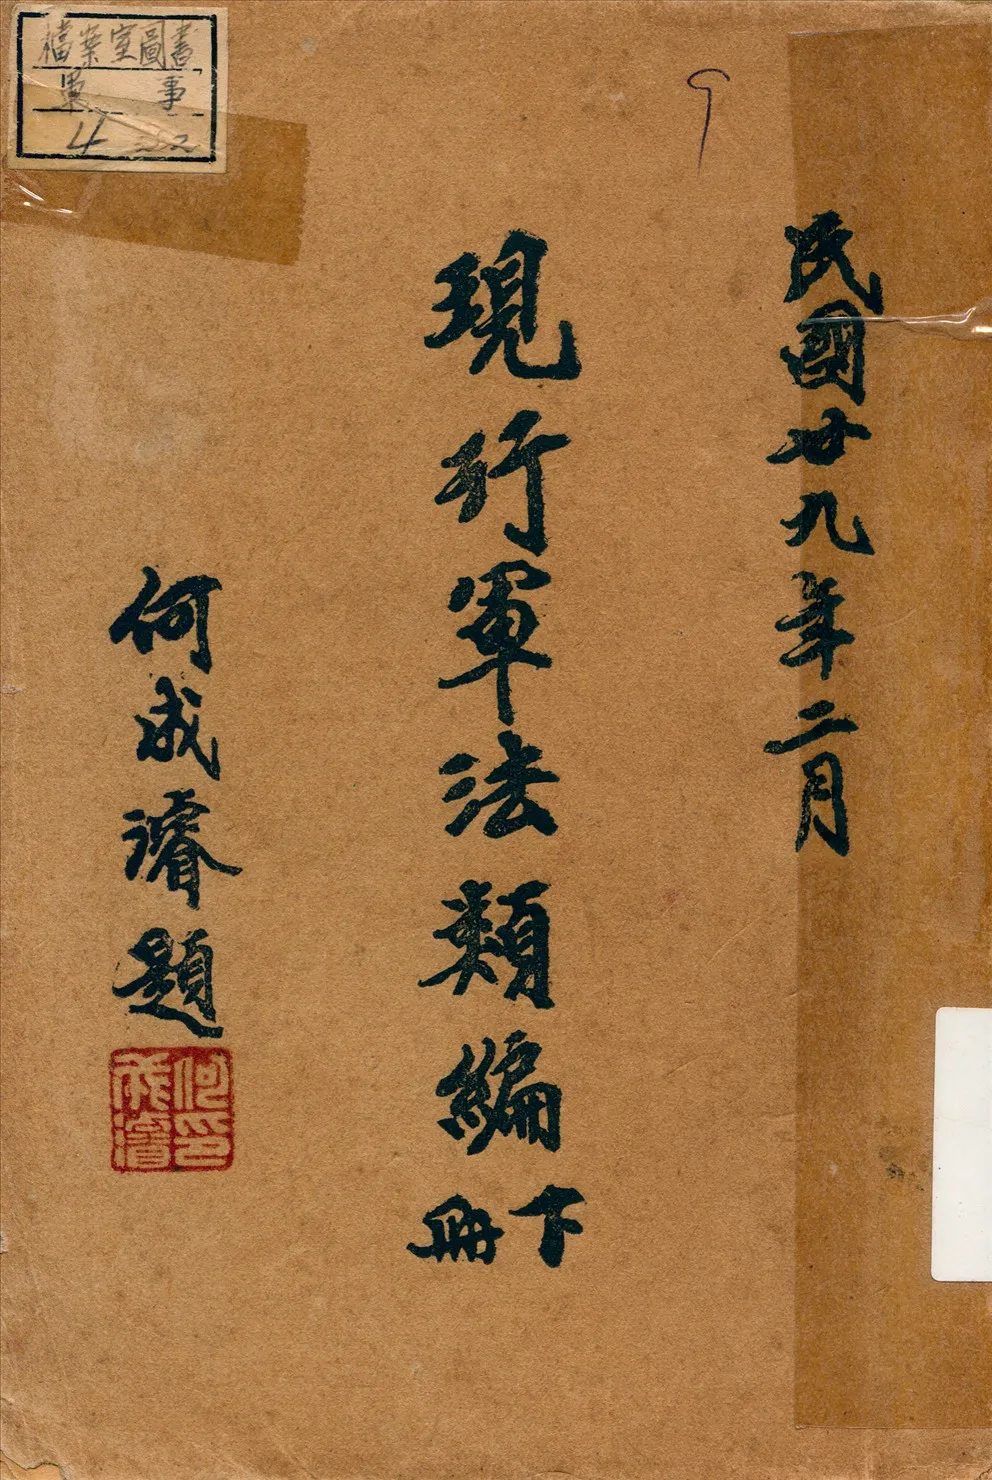 檔案室圖書
軍事
4
民國廿九年二月
現行軍法類編
下冊
何成濬題
何成濬印